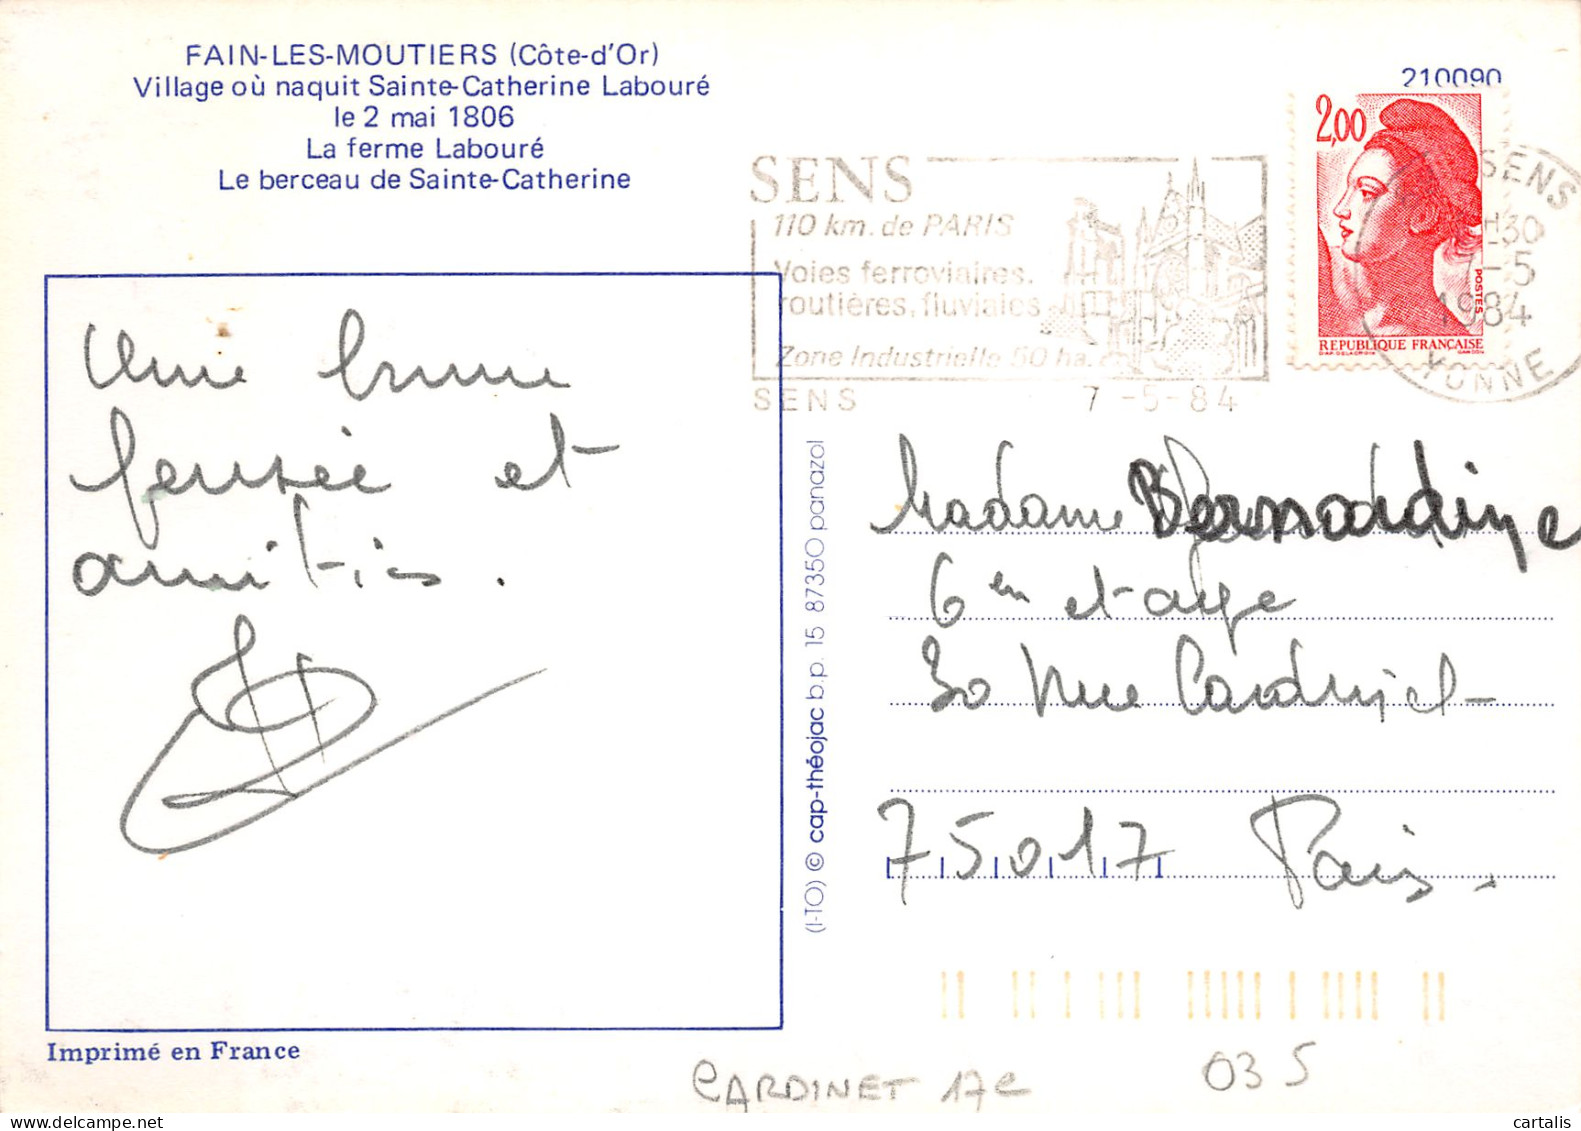 FAIN-LES-MOUTIERS (Côte-d'Or)
Village où naquit Sainte-Catherine Labouré
le 2 mai 1806
La ferme Labouré
Le berceau de Sainte-Catherine
210090
SENS
110 km. de PARIS
Voies ferroviaires.
routières, fluviales
Zone Industrielle 50 ha.
SENS
7 -5-84
2,00
POSTES
REPUBLIQUE FRANÇAISE
D'AP. DELACROIX GANDON
SENS
H30
-5
1984
YONNE
Une bonne
pensée et
amitiés.
Madame
6em etage
30 Rue Cardinet
75017 Paris.
(I-TO) © cap-théojac b.p. 15 87350 panazol
Imprimé en France
CARDINET 17e
03 5
cartalis